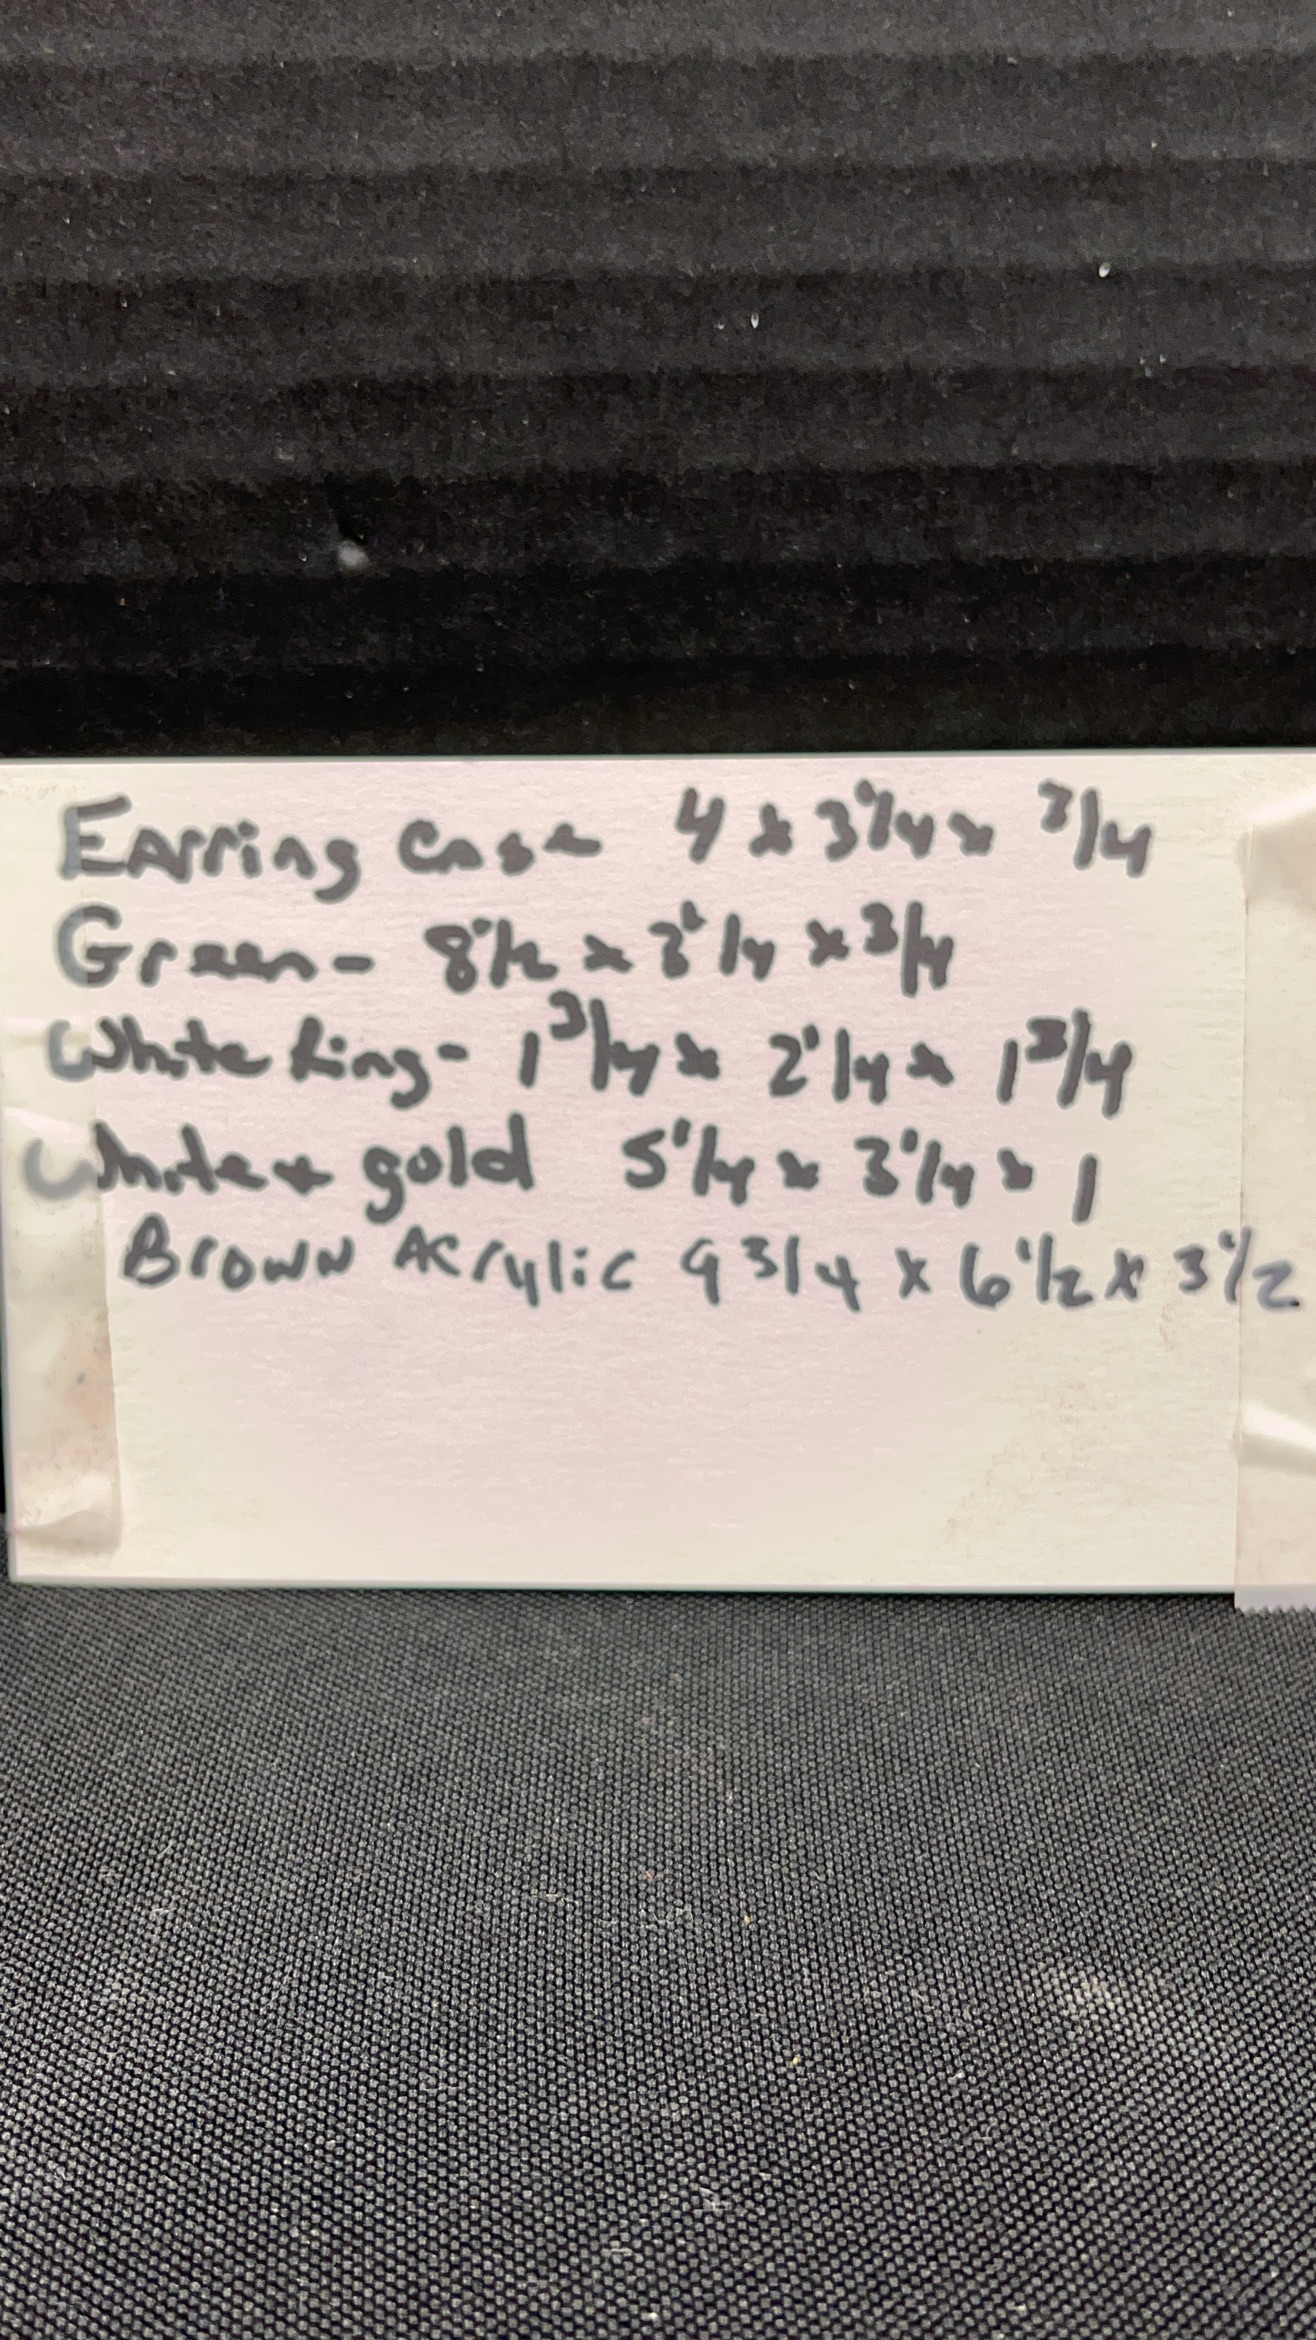 Earring Case 4 x 3 1/4 x 3/4
Green - 8 1/2 x 3 1/4 x 3/4
White Ring - 1 3/4 x 2 1/4 x 1 3/4
White + gold 5 1/4 x 3 1/4 x 1
Brown Acrylic 9 3/4 x 6 1/2 x 3 1/2